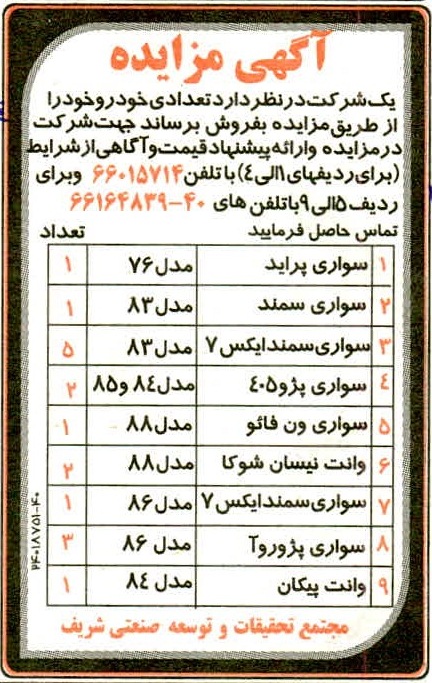 آگهی مزایده
یک شرکت در نظر دارد تعدادی خودرو خود را
از طریق مزایده بفروش برساند جهت شرکت
در مزایده و ارائه پیشنهاد قیمت و آگاهی از شرایط
(برای ردیفهای ۱الی۴) با تلفن ۶۶۰۱۵۷۱۴ و برای
ردیف ۵الی۹ با تلفن های ۴۰-۶۶۱۶۴۸۳۹
تماس حاصل فرمایید تعداد
۱ سواری پراید مدل ۷۶ ۱
۲ سواری سمند مدل ۸۳ ۱
۳ سواری سمند ایکس ۷ مدل ۸۳ ۵
۴ سواری پژو ۴۰۵ مدل ۸۴ و ۸۵ ۲
۵ سواری ون فائو مدل ۸۸ ۱
۶ وانت نیسان شوکا مدل ۸۸ ۲
۷ سواری سمند ایکس ۷ مدل ۸۶ ۱
۸ سواری پژو روآ مدل ۸۶ ۳
۹ وانت پیکان مدل ۸۴ ۱
مجتمع تحقیقات و توسعه صنعتی شریف